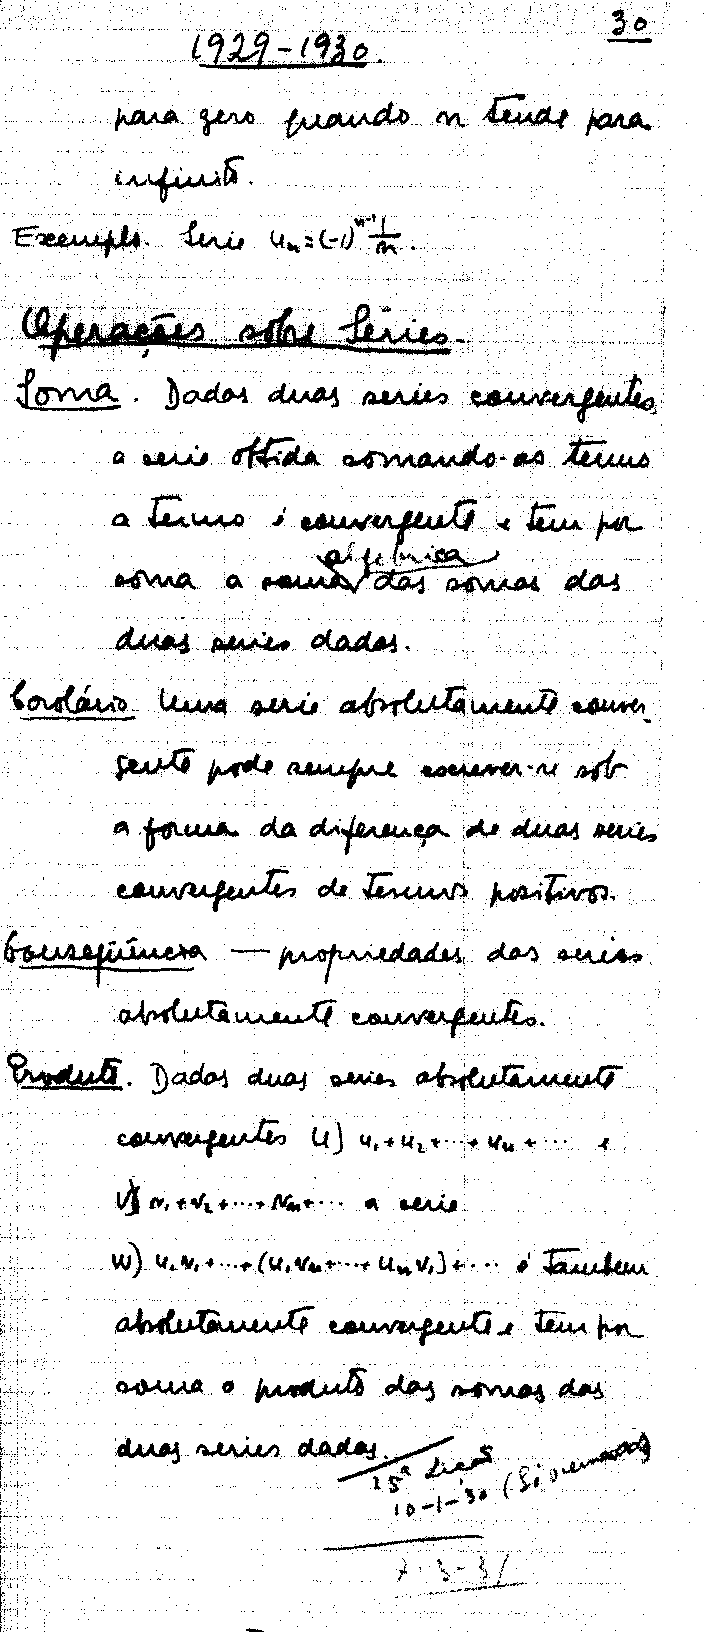 30
1929-1930.
para zero quando n tende para
infinito.
Exemplo. Serie uₙ=(-1)ⁿ⁻¹ 1/n.
Operações sobre Séries.
Soma. Dadas duas series convergentes
a serie obtida somando-as termo
a termo é convergente e tem por
algebrica
soma a soma das somas das
duas series dadas.
Corolário Uma serie absolutamente conver-
gente pode sempre escrever-se sob
a forma da diferença de duas series
convergentes de termos positivos.
Conseqüência — propriedades das series
absolutamente convergentes.
Produto. Dadas duas series absolutamente
convergentes U) u₁+u₂+...+uₙ+... e
V) v₁+v₂+...+vₙ+... a serie
W) u₁v₁+...+(u₁vₙ+...+uₙv₁)+... é tambem
absolutamente convergente e tem por
soma o produto das somas das
duas series dadas.
15ª Lição
10-1-30
7-3-31